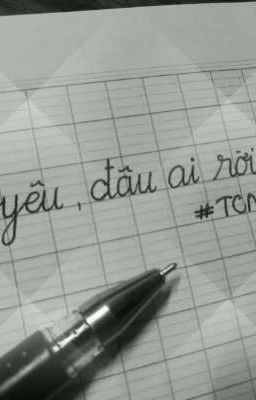 yêu, đâu ai rời
#TCN